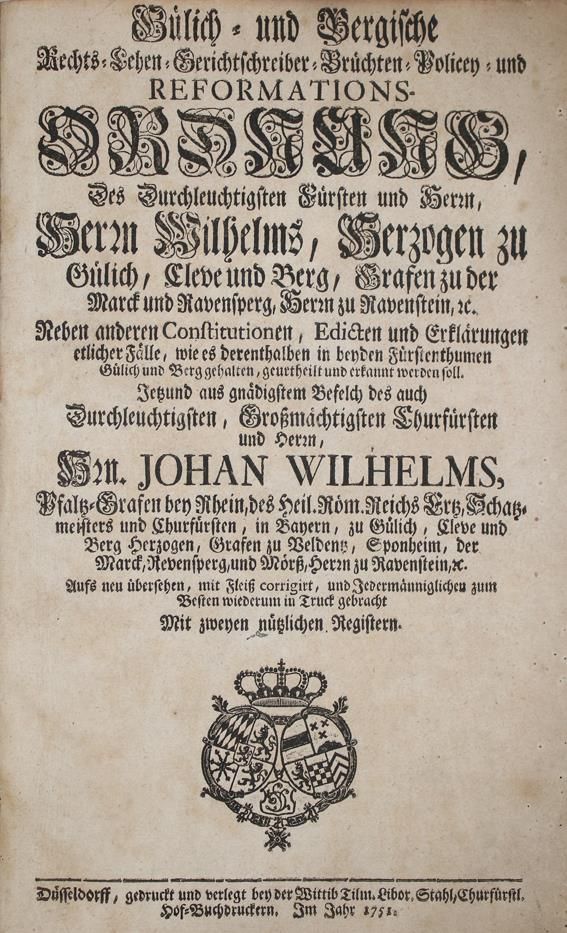 Gülich - und Bergische
Rechts-Lehen-Gerichtschreiber-Brüchten-Policey - und
REFORMATIONS-
ORDNUNG,
Des Durchleuchtigsten Fürsten und Herrn,
Herrn Wilhelms, Herzogen zu
Gülich, Cleve und Berg, Grafen zu der
Marck und Ravensperg, Herrn zu Ravenstein, ꝛc.
Neben anderen Constitutionen, Edicten und Erklärungen
etlicher Fälle, wie es derenthalben in beyden Fürstenthumen
Gülich und Berg gehalten, geurtheilt und erkannt werden soll.
Jetzund aus gnädigstem Befelch des auch
Durchleuchtigsten, Großmächtigsten Churfürsten
und Herrn,
Hrn. JOHAN WILHELMS,
Pfaltz-Grafen bey Rhein, des Heil. Röm. Reichs Ertz, Schatz-
meisters und Churfürsten, in Bayern, zu Gülich, Cleve und
Berg Herzogen, Grafen zu Veldentz, Sponheim, der
Marck, Revensperg, und Mörß, Herrn zu Ravenstein, ꝛc.
Aufs neu übersehen, mit Fleiß corrigirt, und Jedermänniglichen zum
Besten wiederum in Truck gebracht
Mit zweyen nützlichen Registern.
Düsseldorff, gedruckt und verlegt bey der Wittib Tilm. Libor. Stahl, Churfürstl.
Hof-Buchdruckern. Im Jahr 1751.